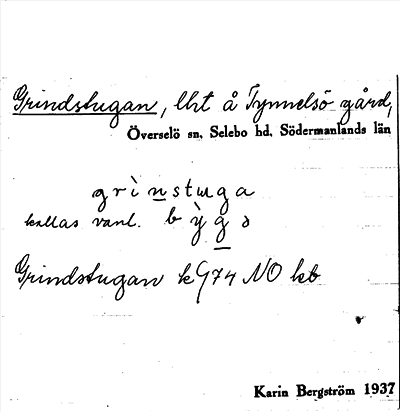 Grindstugan, lht å Tynnelsö gård,
Överselö sn, Selebo hd, Södermanlands län
grìnstuga
kallas vanl. bỳgɔ
Grindstugan k G74 NO kb
Karin Bergström 1937